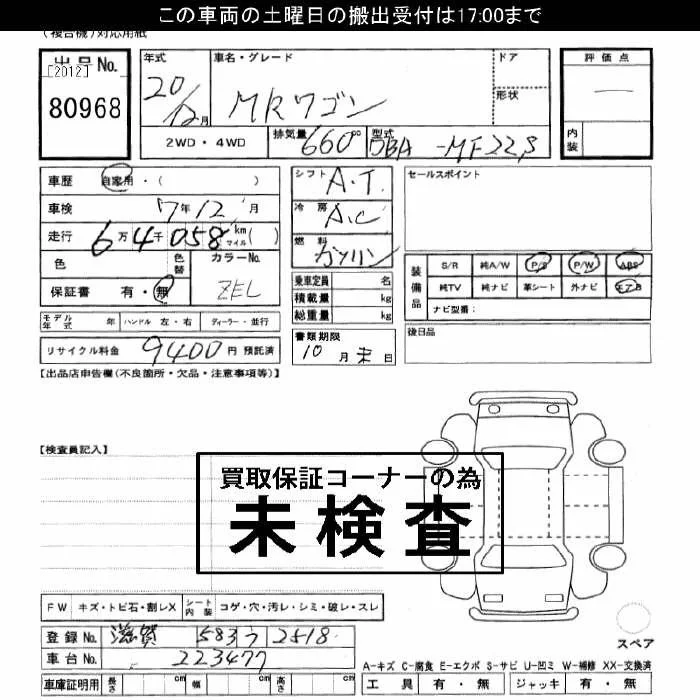 この車両の土曜日の搬出受付は17:00まで
(複合機)対応用紙
出品No. [2012] 80968
年式 20/12月 車名・グレード MRワゴン ドア 形状
2WD・4WD 排気量 660cc 型式 DBA-MF22S
評価点 — 内装
車歴 自家用・( )
車検 7年12月
走行 6万4千058km マイル( )
色 色替 カラーNo. ZEL
保証書 有・無
モデル年式 年 ハンドル 左・右 ディーラー・並行
リサイクル料金 9400円 預託済
シフト A.T.
冷房 A.C
燃料 ガソリン
乗車定員 名
積載量 kg
総重量 kg
書類期限 10月末日
セールスポイント
装備品 S/R 純A/W P/S P/W ABS
純TV 純ナビ 革シート 外ナビ エアB
ナビ型番:
後日品
【出品店申告欄(不良箇所・欠品・注意事項等)】
【検査員記入】
買取保証コーナーの為
未検査
FW キズ・トビ石・割レX シート内装 コゲ・穴・汚レ・シミ・破レ・スレ
登録No. 滋賀 583 う 2518
車台No. 223477
車庫証明用 長さ cm 幅 cm 高さ cm
スペア
A-キズ C-腐食 E-エクボ S-サビ U-凹ミ W-補修 XX-交換済
工具 有・無 ジャッキ 有・無